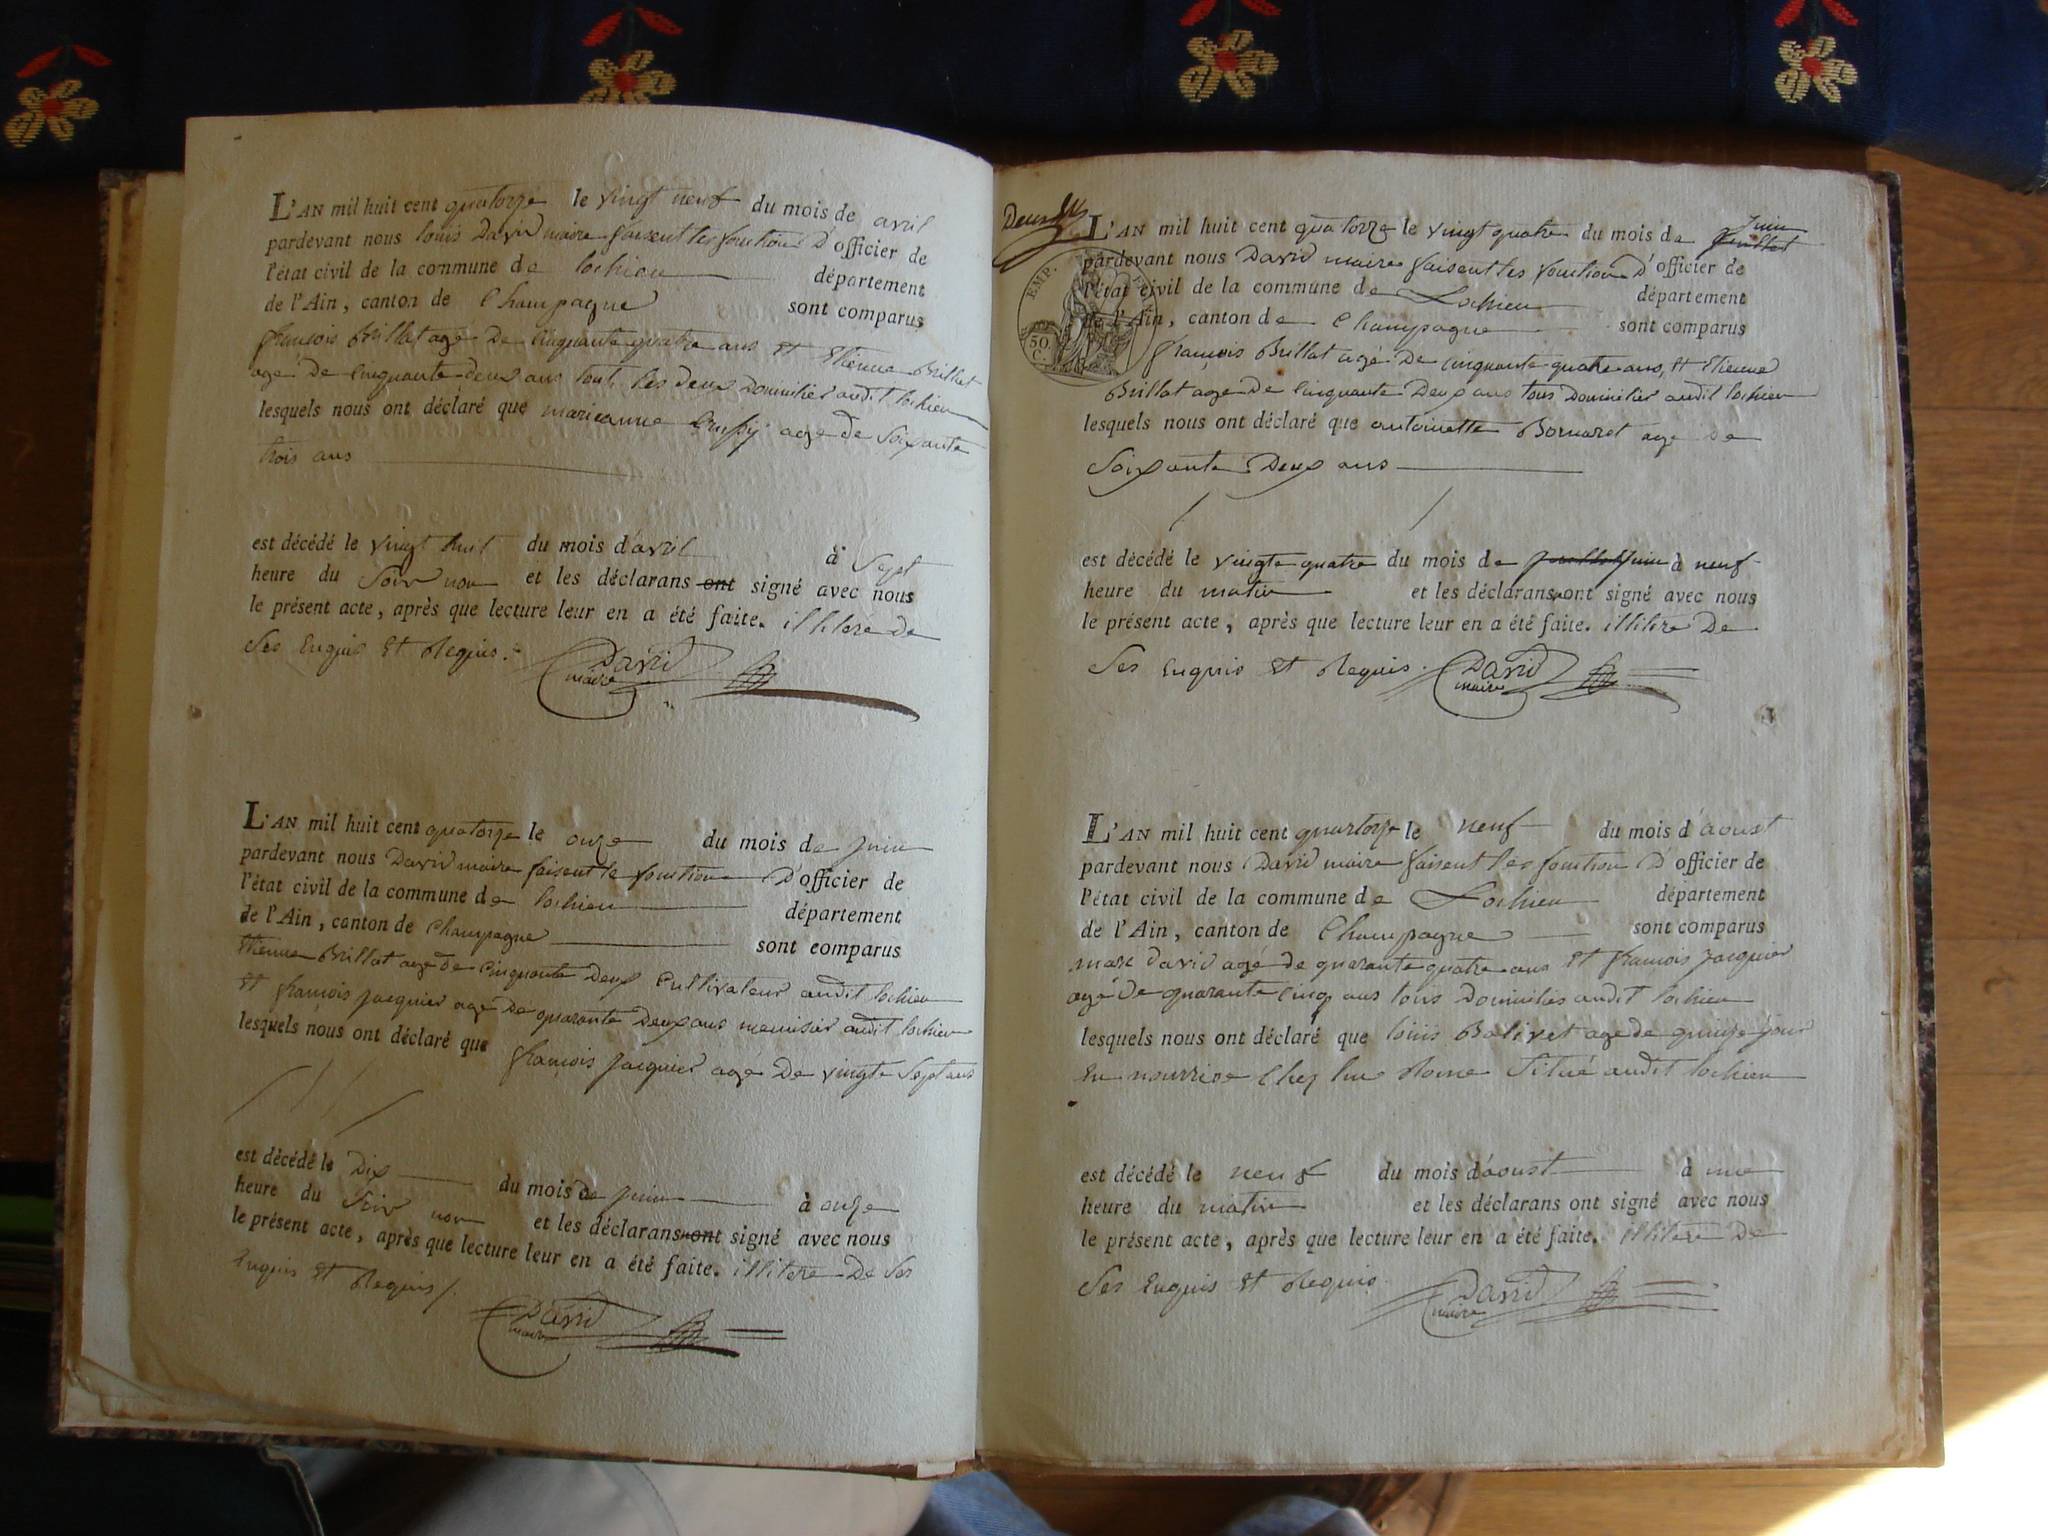 L'AN mil huit cent quatorze le vingt neuf du mois de avril
pardevant nous louis David maire faisent les fonction D'officier de
l'état civil de la commune de lochieu département
de l'Ain, canton de Champagne sont comparus
françois Brillat age De Cinquante quatre ans Et Etienne Brillat
agé De Cinquante deux ans tout les deux Domiciliés audit lochieu
lesquels nous ont déclaré que marieanne age de Soixante
trois ans
est décédé le vingt huit du mois d'avril à Sept
heure du Soir non et les déclarans ont signé avec nous
le présent acte, après que lecture leur en a été faite. illitéré de
Ses Enquis Et Requis.
David
maire
L'AN mil huit cent quatorze le onze du mois de juin
pardevant nous David maire faisent le fonction D'officier de
l'état civil de la commune de lochieu département
de l'Ain, canton de Champagne sont comparus
Etienne Brillat age de Cinquante Deux Cultivateur audit lochieu
Et françois jacquier age De quarante Deux ans menuisier audit lochieu
lesquels nous ont déclaré que françois jacquier agé De vingte Sept ans
est décédé le Dix du mois de juin à onze
heure du Soir non et les déclarans ont signé avec nous
le présent acte, après que lecture leur en a été faite. illitere De Ses
Enquis Et Requis.
David
maire
Deux
L'AN mil huit cent quatorze le vingt quatre du mois de juillet juin
pardevant nous David maire faisent les fonction D'officier de
l'état civil de la commune de Lochieu département
de l'Ain, canton de Champagne sont comparus
EMP. FR.
50
C.
françois Brillat agé De Cinquante quatre ans, Et Etienne
Brillat age De Cinquante Deux ans tous Domiciliés audit lochieu
lesquels nous ont déclaré que antoinette Bornarel age de
Soixante Deux ans
est décédé le vingte quatre du mois de juillet juin à neuf
heure du matin et les déclarans ont signé avec nous
le présent acte, après que lecture leur en a été faite. illitére De
Ses Enquis Et Requis.
David
maire
L'AN mil huit cent quartorze le neuf du mois d'aoust
pardevant nous David maire faisent les fonction D'officier de
l'état civil de la commune de Lochieu département
de l'Ain, canton de Champagne sont comparus
marc david agé de quarante quatre ans Et françois jacquier
agé De quarante Cinq ans tous Domiciliés audit lochieu
lesquels nous ont déclaré que louis Balivet age de quinze jour
En nourrise Chez Situé audit lochieu
est décédé le neuf du mois d'aoust à une
heure du matin et les déclarans ont signé avec nous
le présent acte, après que lecture leur en a été faite. illitere De
Ses Enquis Et Requis
David
maire